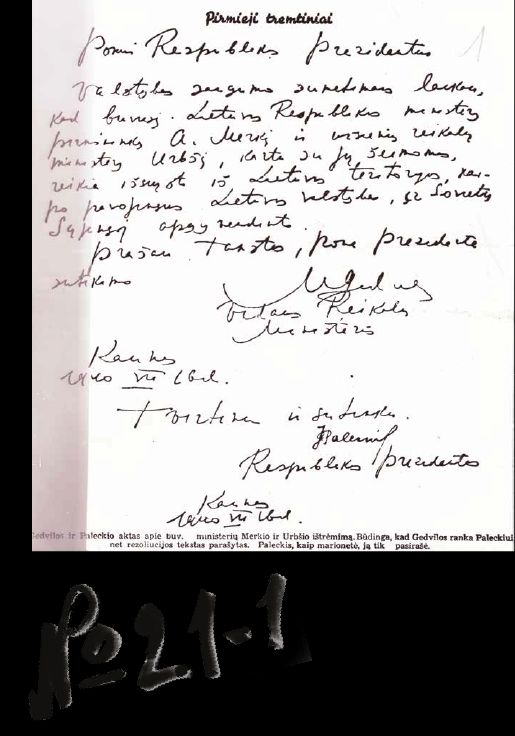 Pirmieji tremtiniai
Ponui Respublikos Prezidentui
1
Valstybės saugumo sumetimais laikau,
kad buvusį Lietuvos Respublikos ministerį
pirmininką A. Merkį ir užsienių reikalų
ministerį Urbšį, kartu su jų šeimomis,
reikia išsiųsti iš Lietuvos teritorijos, kai-
po pavojingus Lietuvos valstybei, į Sovietų
Sąjungą apgyvendinti.
Prašau Tamstos, pone Prezidente
sutikimo
MGedvilas
Vidaus Reikalų
Ministeris
Kaunas
1940 VII
Tvirtinu ir sutinku.
JPaleckis
Respublikos Prezidentas
Kaunas
1940 VII
Gedvilos ir Paleckio aktas apie buv. ministerių Merkio ir Urbšio ištrėmimą. Būdinga, kad Gedvilos ranka Paleckiui
net rezoliucijos tekstas parašytas. Paleckis, kaip marionetė, ją tik pasirašė.
№ 21-1